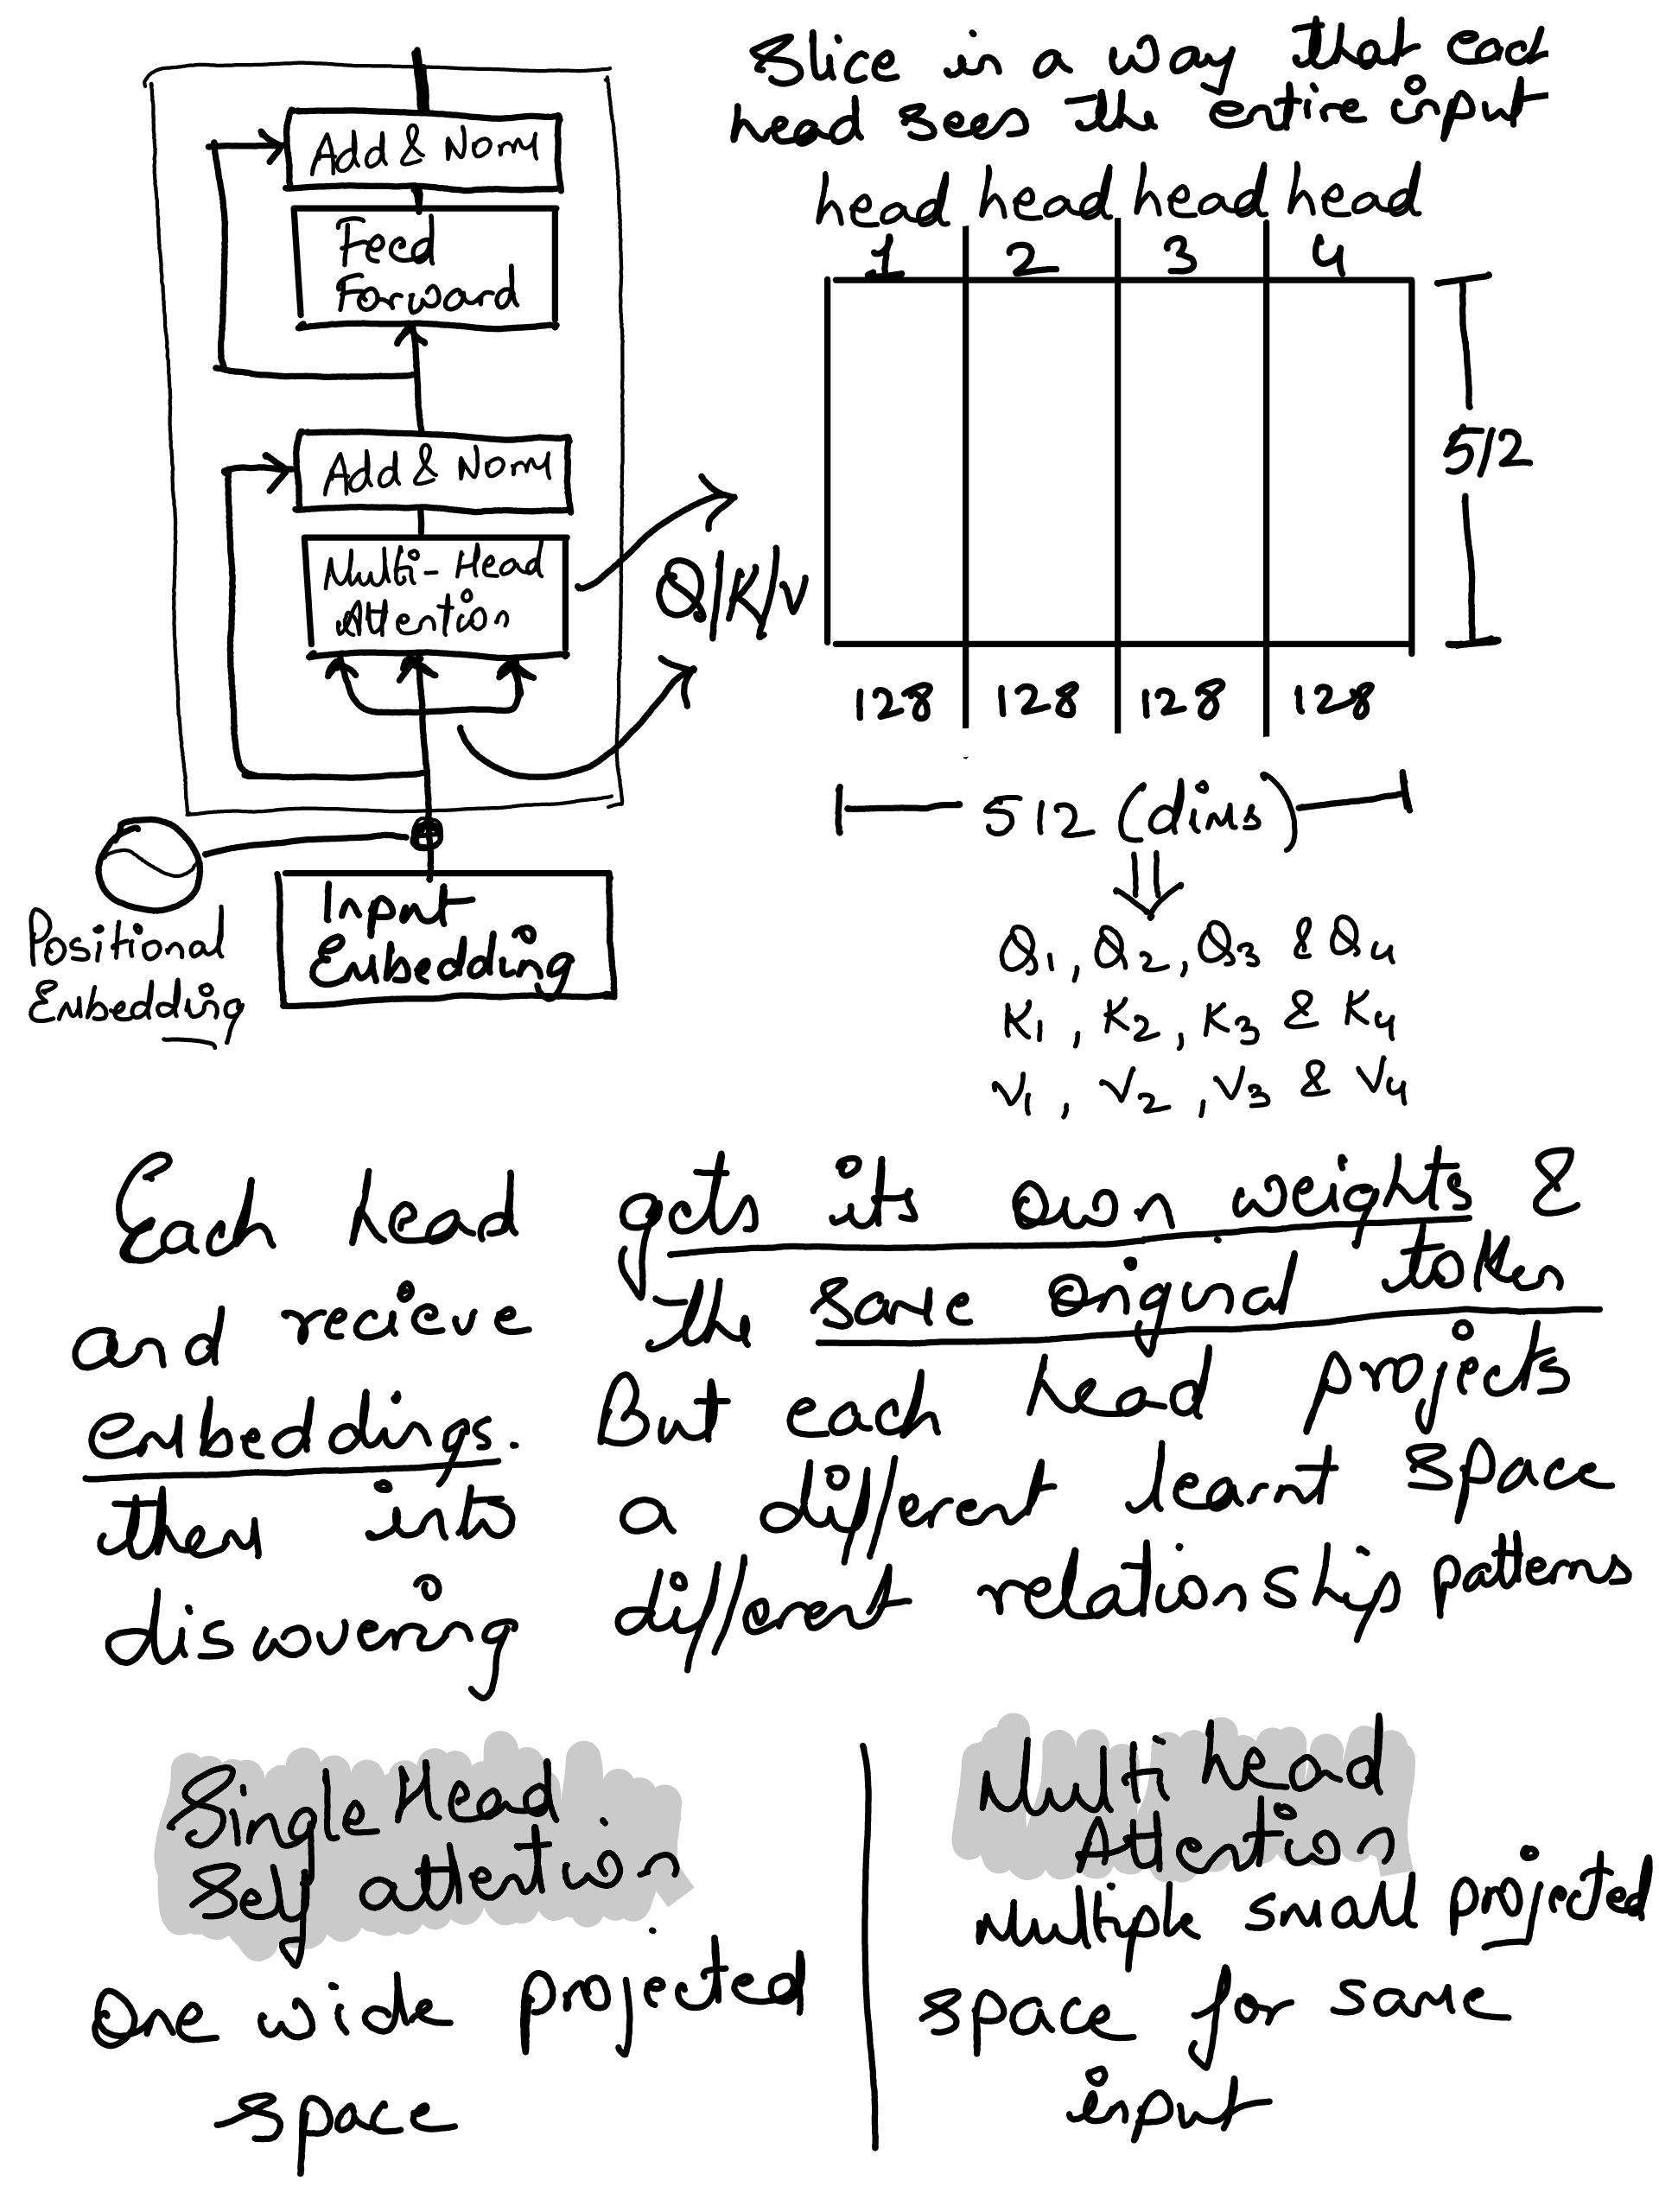 Add & Norm
Feed
Forward
Add & Norm
Multi-Head
Attention
Positional
Embedding
Input
Embedding
Slice in a way that each
head sees the entire input
head head head head
1 2 3 4
Q/K/V
512
128 128 128 128
512 (dims)
Q1, Q2, Q3 & Q4
K1, K2, K3 & K4
V1, V2, V3 & V4
Each head gets its own weights &
and recieve the same original token
embeddings. But each head projects
them into a different learnt space
discovering different relationship patterns
Single Head
Self attention
One wide projected
space
Multi head
Attention
Multiple small projected
space for same
input